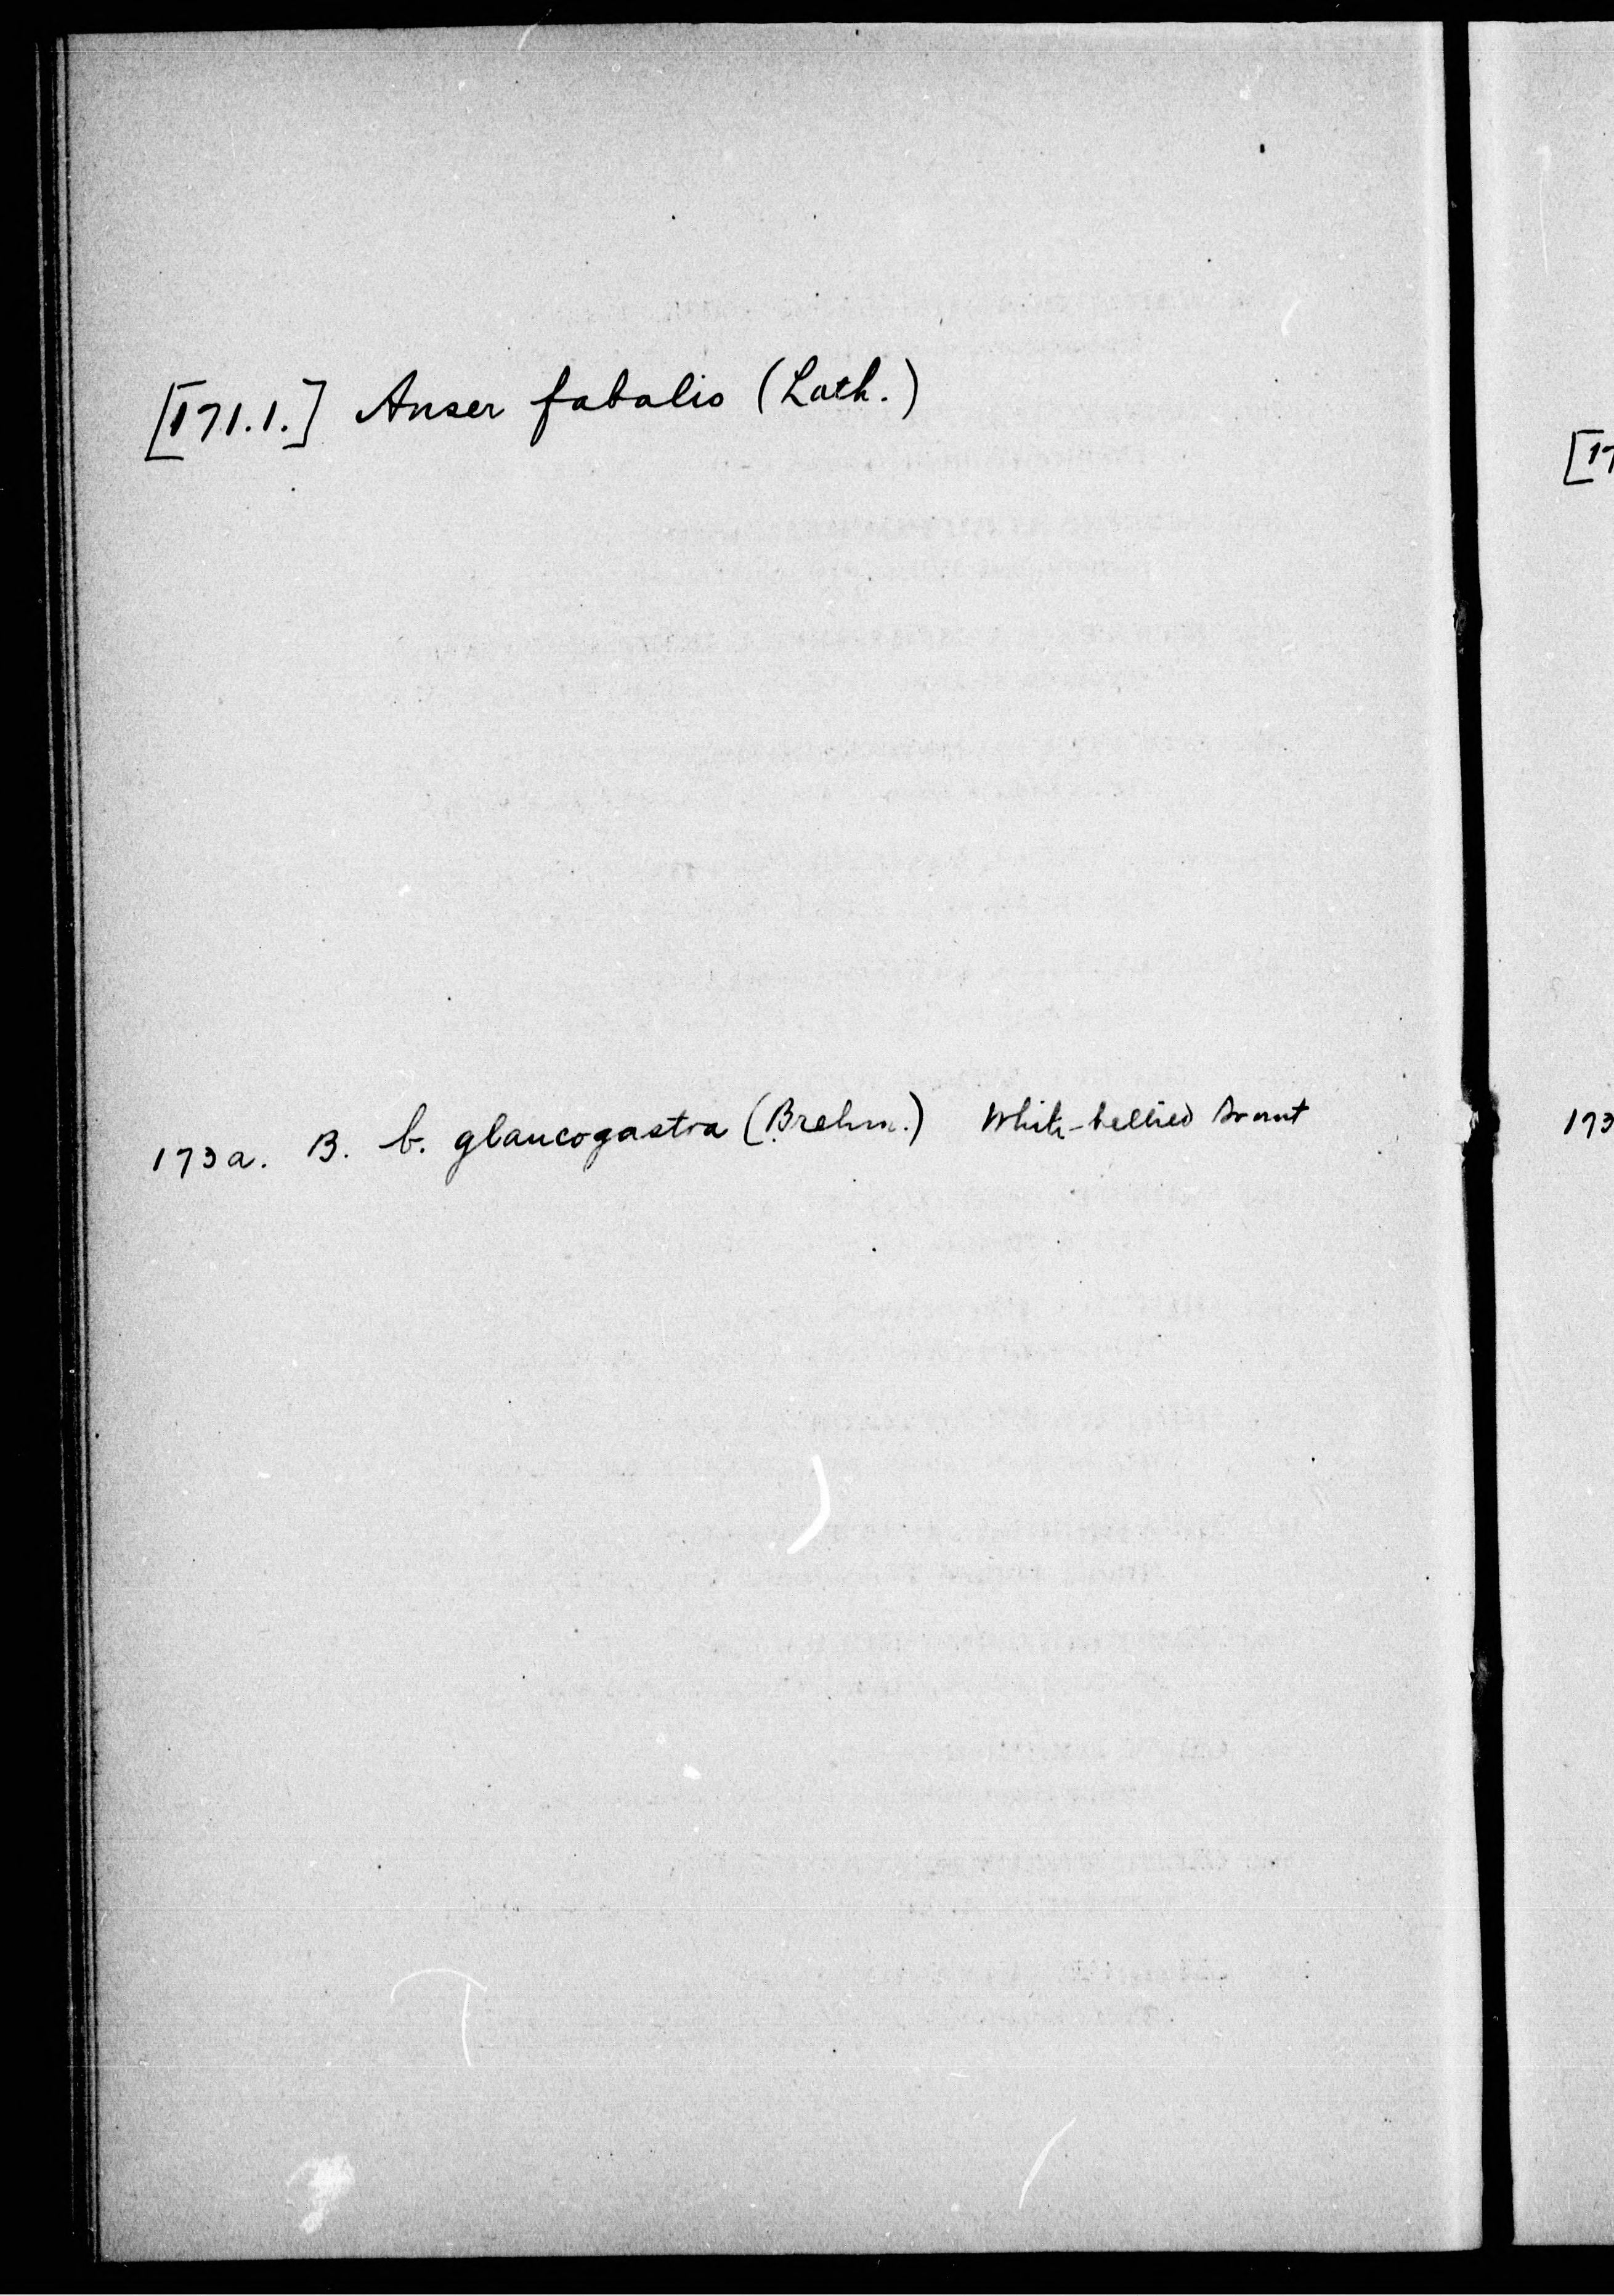 [171.1.] Anser fabalis (Lath.)
173a. B. b. glaucogastra (Brehm.) White-bellied brant
[17
173